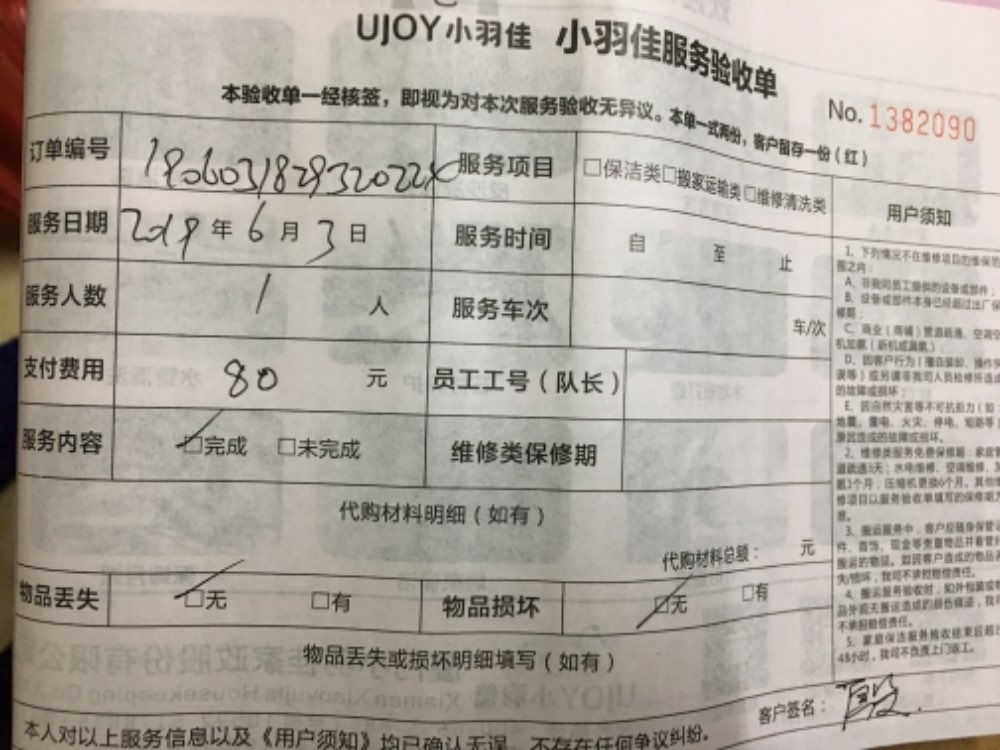 UJOY小羽佳 小羽佳服务验收单
本验收单一经核签，即视为对本次服务验收无异议。本单一式两份，客户留存一份（红）
No. 1382090
订单编号 服务项目 □保洁类□搬家运输类□维修清洗类
服务日期 2019 年 6 月 3 日 服务时间 自 至 止
服务人数 1 人 服务车次 车/次
支付费用 80 元 员工工号（队长）
服务内容 □完成 □未完成 维修类保修期
代购材料明细（如有）
代购材料总额： 元
物品丢失 □无 □有 物品损坏 □无 □有
物品丢失或损坏明细填写（如有）
本人对以上服务信息以及《用户须知》均已确认无误，不存在任何争议纠纷。
客户签名：
用户须知
1、下列情况不在维修项目的维保范
围之内：
A、非我司员工提供的设备或部件；
B、设备或部件本身已经超过出厂保
修期；
C、商业（商铺）管道疏通、空调
机加氟（新机或漏氟）；
D、因客户行为（擅自装卸、操作失
误等）或另请非我司人员检修所造成
的故障或损坏；
E、因自然灾害等不可抗拒力（如
地震、雷电、火灾、停电、短路等
原因造成的故障或损坏。
2、维修类服务免费保修期：家庭管
道疏通3天；水电维修、空调维修、
氟1个月；压缩机更换6个月。其他
修项目以服务验收单填写的保修期为
准。
3、搬运服务中，客户应随身保管
件、首饰、现金等贵重物品并看管
搬运的物品。如因客户造成的物品
失/损坏，我司不承担赔偿责任。
4、搬运服务验收时，如外包装或
品外观无搬运造成的损伤痕迹，我
不承担赔偿责任。
5、家庭保洁服务验收结束后超
48小时，我司不负责上门返工。